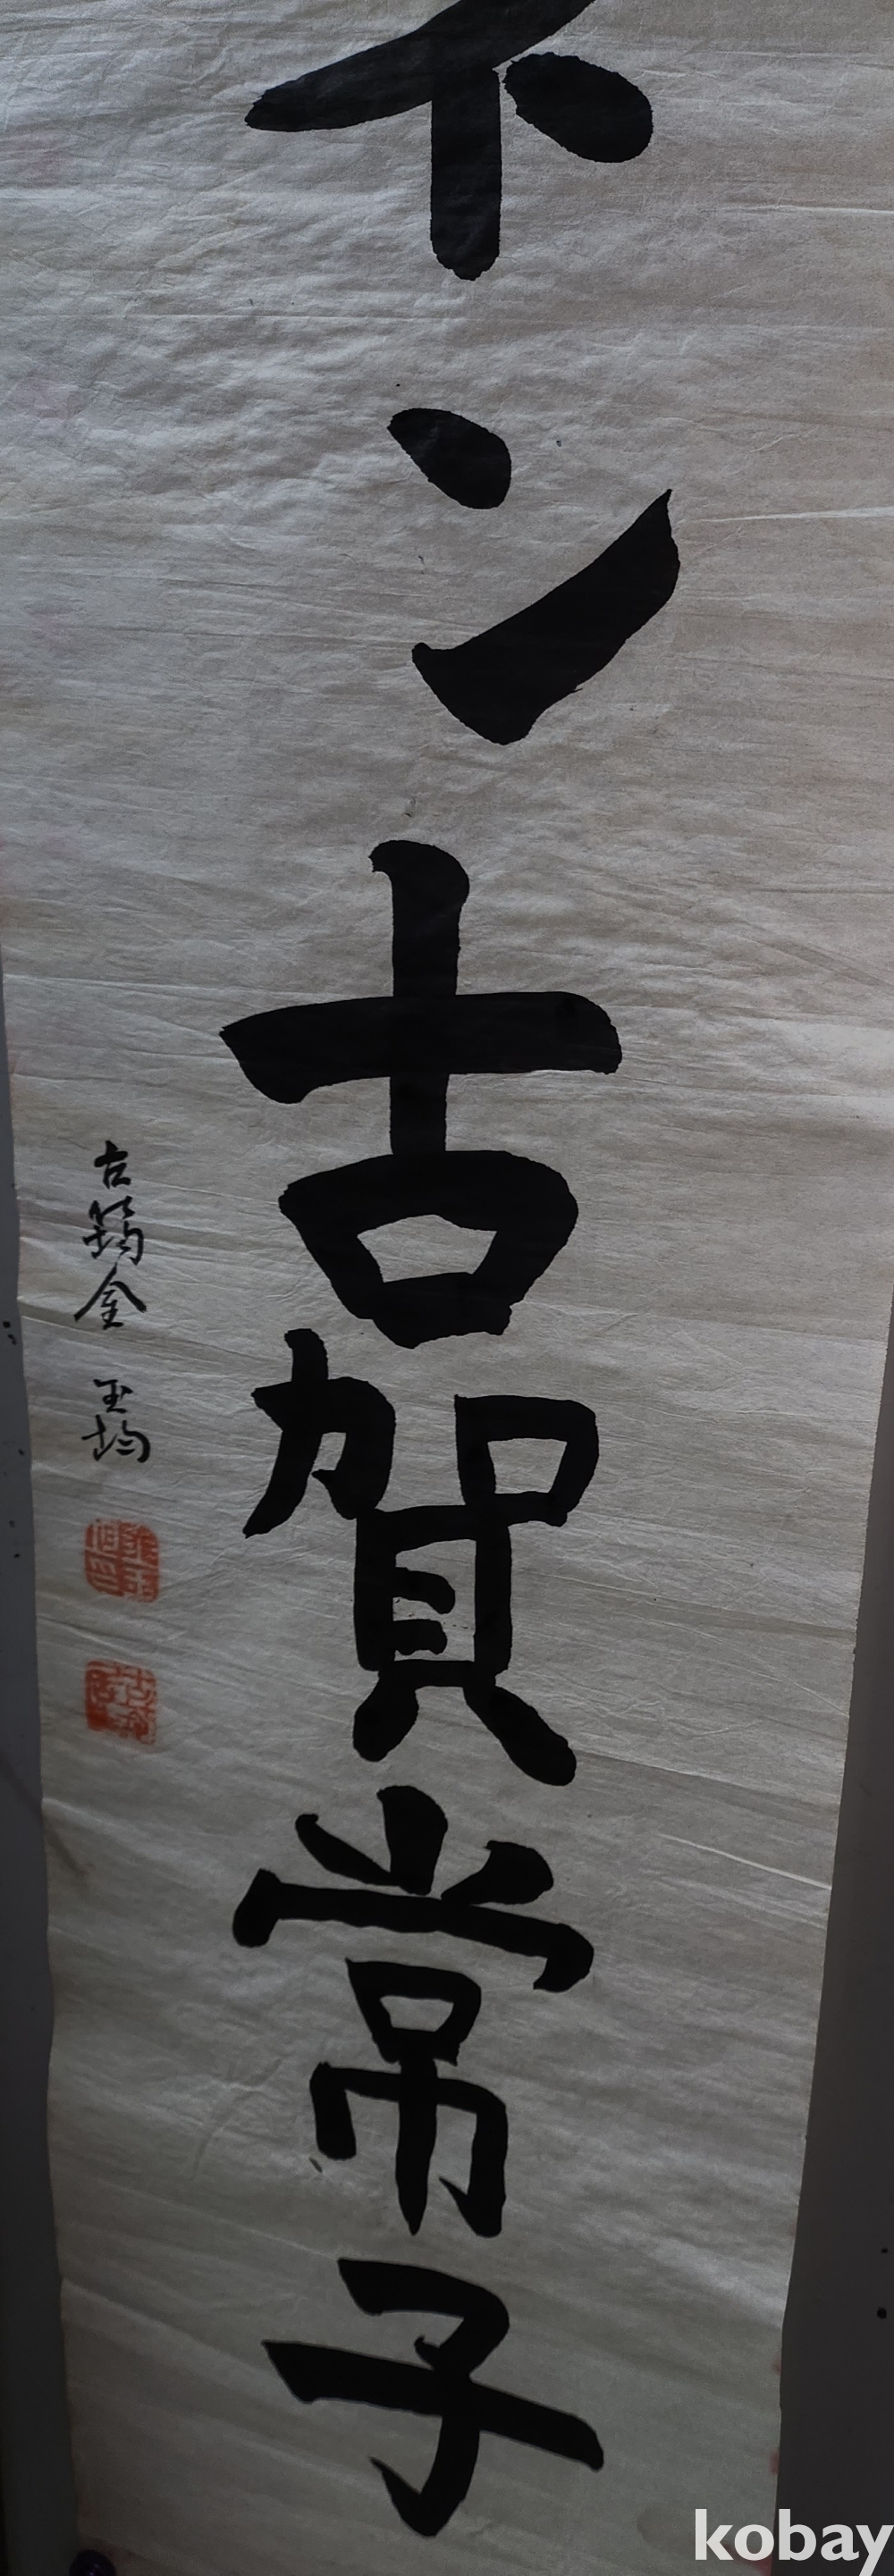 ネン古賀常子
古筠金 玉均
kobay